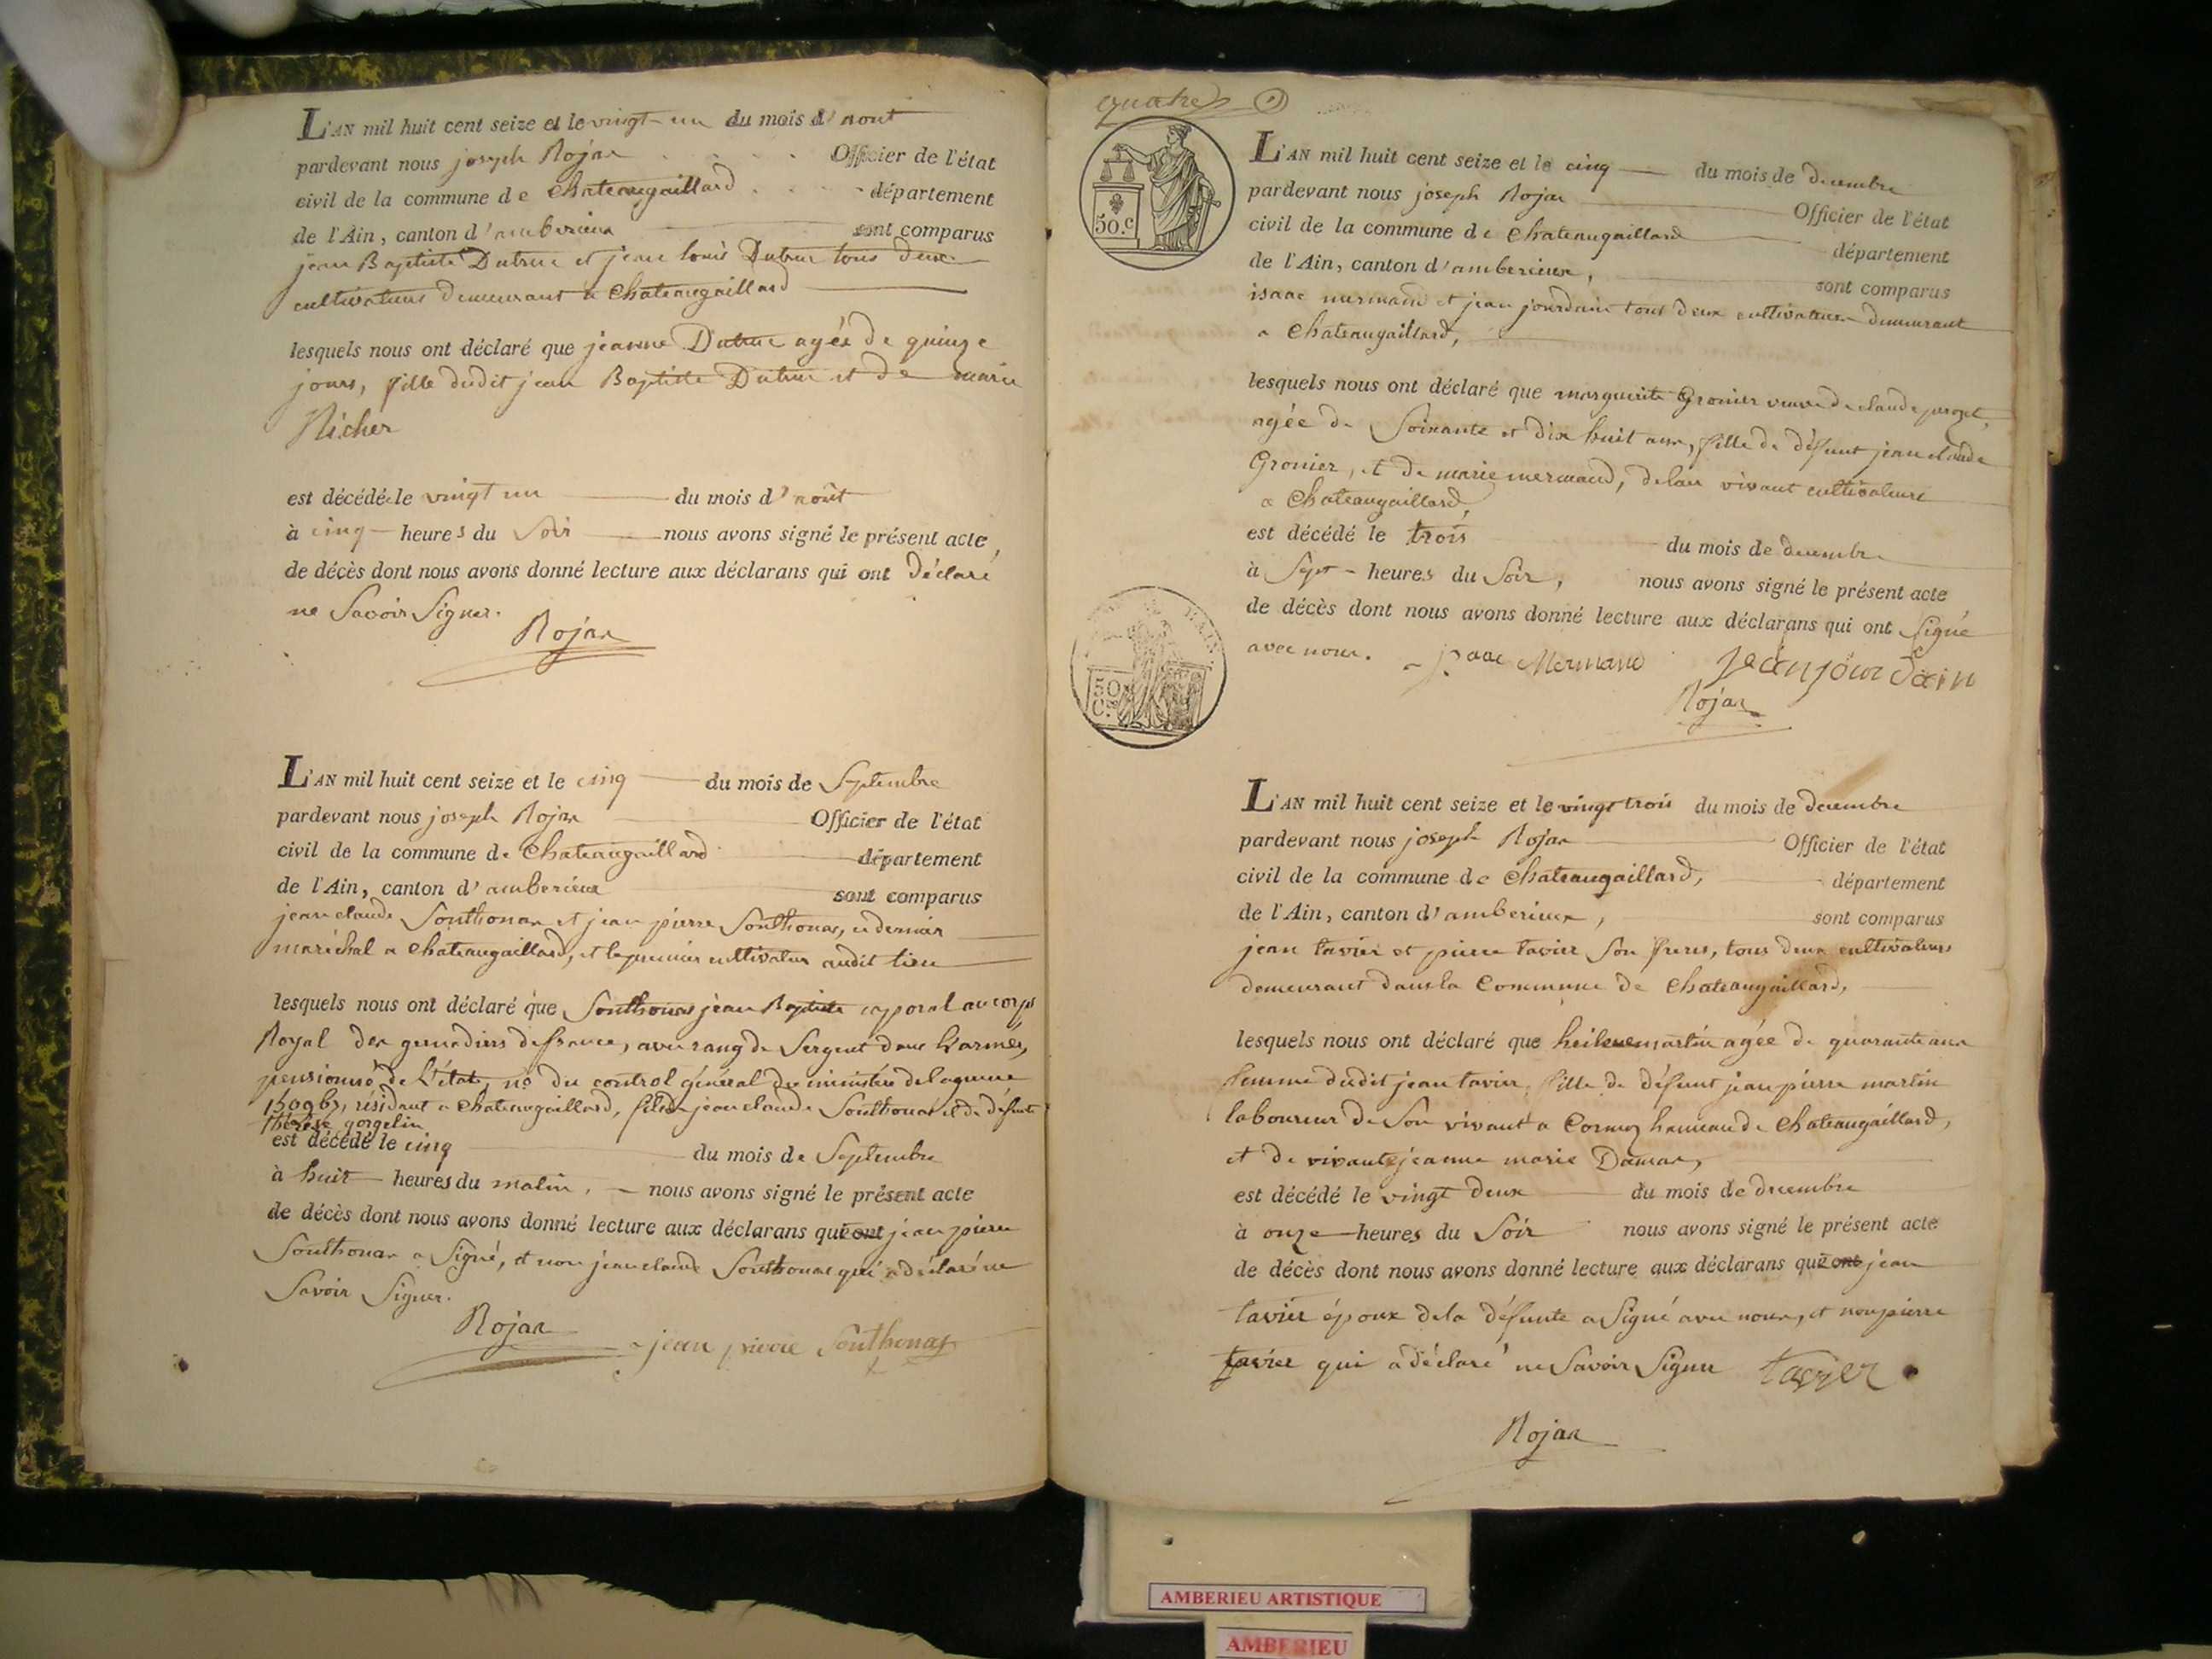 L'AN mil huit cent seize et le vingt un du mois d'aout
pardevant nous joseph Rojas Officier de l'état
civil de la commune de Chateaugaillard département
de l'Ain, canton d'amberieux sont comparus
jean Baptiste Dutruc et jean louis Dutruc tous deux
cultivateurs demeurant a Chateaugaillard
lesquels nous ont déclaré que jeanne Dutruc agée de quinze
jours, fille dudit jean Baptiste Dutruc et de marie
Richer
est décédé le vingt un du mois d'août
à cinq heures du Soir nous avons signé le présent acte
de décès dont nous avons donné lecture aux déclarans qui ont déclaré
ne Savoir Signer.
Rojas
L'AN mil huit cent seize et le cinq du mois de Septembre
pardevant nous joseph Rojas Officier de l'état
civil de la commune de Chateaugaillard département
de l'Ain, canton d'amberieux sont comparus
jean claude Southonas et jean pierre Southonas, ce dernier
maréchal a Chateaugaillard, et le premier cultivateur audit lieu
lesquels nous ont déclaré que Southonas jean Baptiste caporal au corps
Royal des grenadiers de france, avec rang de Sergent dans L'armée,
pensionné de L'état, no du control général du ministère de la guerre
résidant a Chateaugaillard, fils de jean claude Southonas et de défunte
thérèse gorgelin
est décédé le cinq du mois de Septembre
à huit heures du matin, nous avons signé le présent acte
de décès dont nous avons donné lecture aux déclarans qui ont jean pierre
Southonas a Signé, et non jean claude Southonas qui a déclaré ne
Savoir Signer.
Rojas jean pierre Southonas
quatre
50.c
L'AN mil huit cent seize et le cinq du mois de decembre
pardevant nous joseph Rojas Officier de l'état
civil de la commune de Chateaugaillard département
de l'Ain, canton d'amberieux, sont comparus
isaac mermand et jean jourdain tous deux cultivateurs demeurant
a Chateaugaillard,
lesquels nous ont déclaré que marguerite Gronier veuve de claude
agée de Soixante et dix huit ans, fille de défunt jean claude
Gronier, et de marie mermand, de leur vivant cultivateurs
a Chateaugaillard,
est décédé le trois du mois de decembre
à Sept heures du Soir, nous avons signé le présent acte
de décès dont nous avons donné lecture aux déclarans qui ont Signé
avec nous. isaac Mermand jean jourdain
50 C.
Rojas
L'AN mil huit cent seize et le vingt trois du mois de decembre
pardevant nous joseph Rojas Officier de l'état
civil de la commune de Chateaugaillard, département
de l'Ain, canton d'amberieux, sont comparus
jean tavier et pierre tavier Son freres, tous deux cultivateurs
demeurant dans la Commune de Chateaugaillard,
lesquels nous ont déclaré que martin agée de quarante ans
femme dudit jean tavier, fille de défunt jean pierre martin
laboureur de Son vivant a Cormoz hameau de Chateaugaillard,
et de vivante jeanne marie Damas,
est décédé le vingt deux du mois de decembre
à onze heures du Soir nous avons signé le présent acte
de décès dont nous avons donné lecture aux déclarans qui ont jean
tavier époux de la défunte a Signé avec nous, et non pierre
tavier qui a déclaré ne Savoir Signer tavier
Rojas
AMBERIEU ARTISTIQUE
AMBERIEU